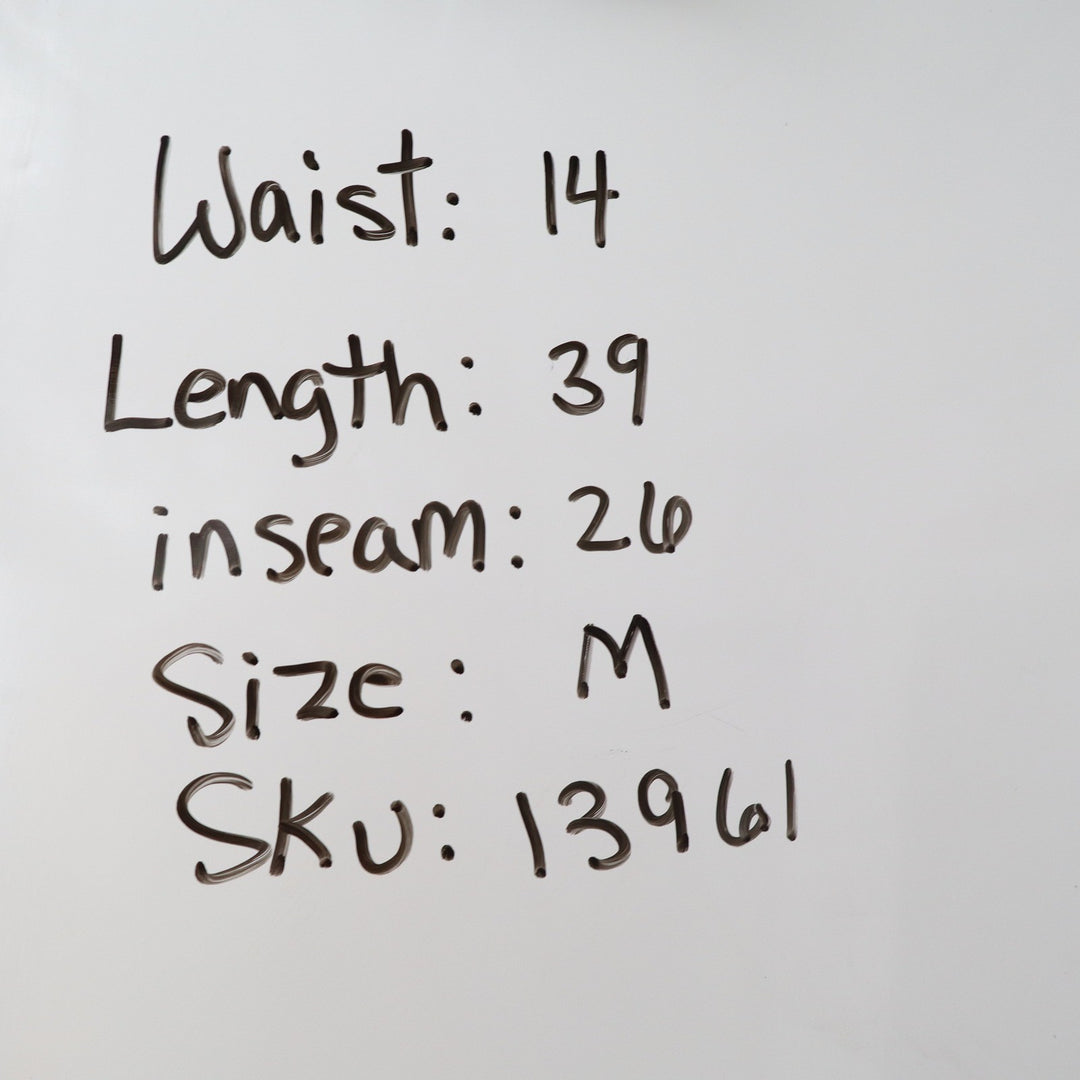 Waist: 14
Length: 39
inseam: 26
Size: M
SKU: 13961